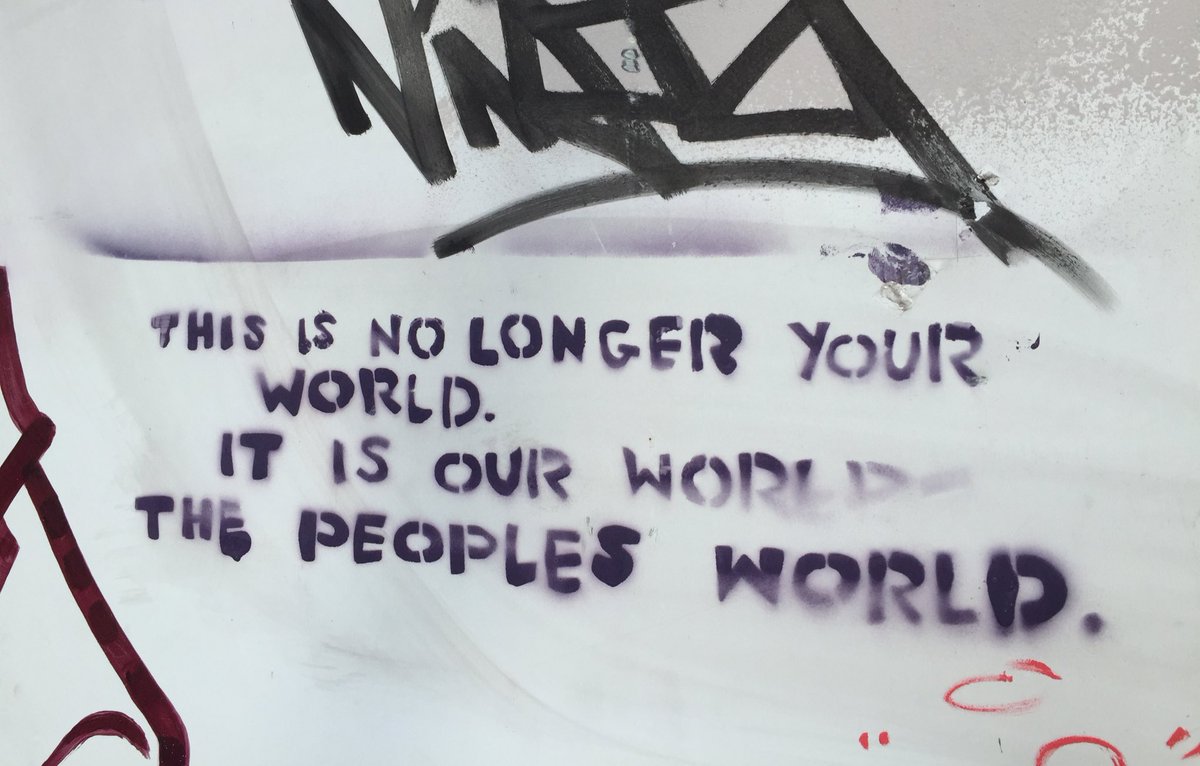 THIS IS NO LONGER YOUR
WORLD.
IT IS OUR WORLD-
THE PEOPLES WORLD.